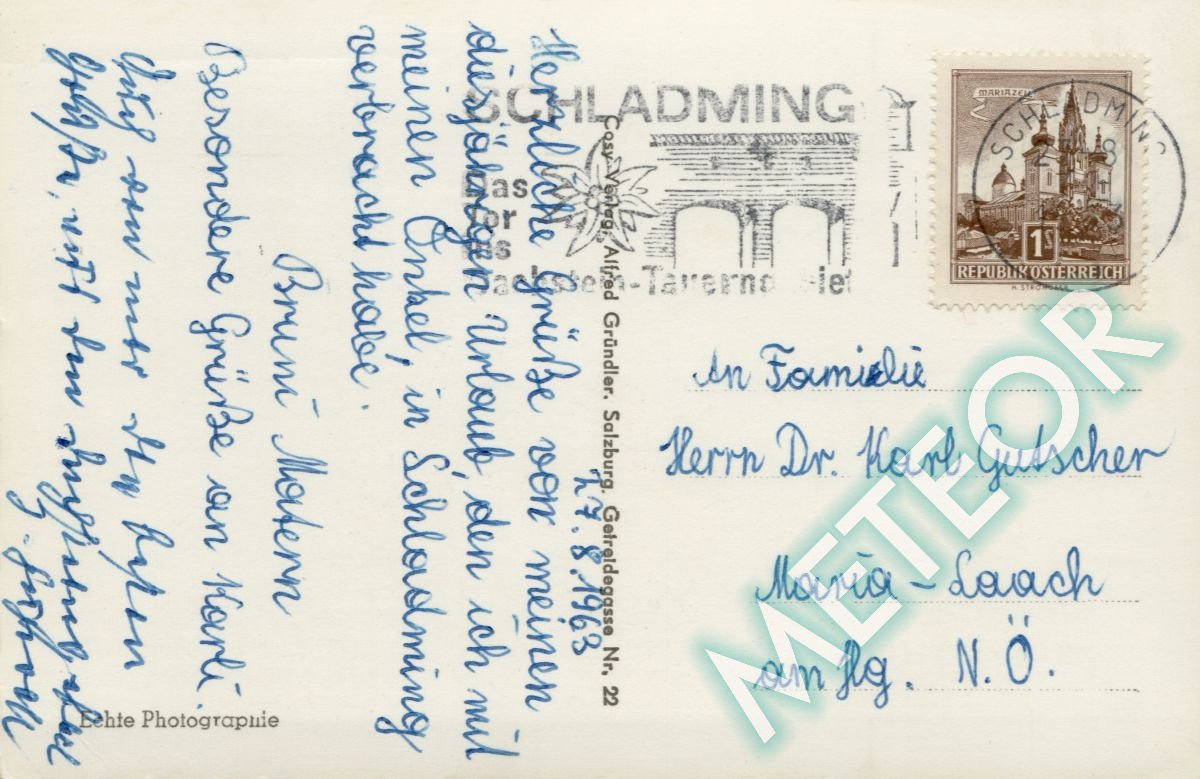 SCHLADMING
Das
Tor
MARIAZELL
SCHLADMING
1S
REPUBLIK ÖSTERREICH
27.8.1963
Herzliche Grüße von meinen
diesjährigen Urlaub, den ich mit
meinen Onkel, in Schladming
verbracht habe.
Bruni Matern
Besondere Grüße an Karli.
Auch von mir die besten
Cosy-Verlag, Alfred Gründler, Salzburg, Getreidegasse Nr. 22
An Familie
Herrn Dr. Karl Gutscher
Maria-Laach
am Jlg. N.Ö.
Echte Photographie
METEOR